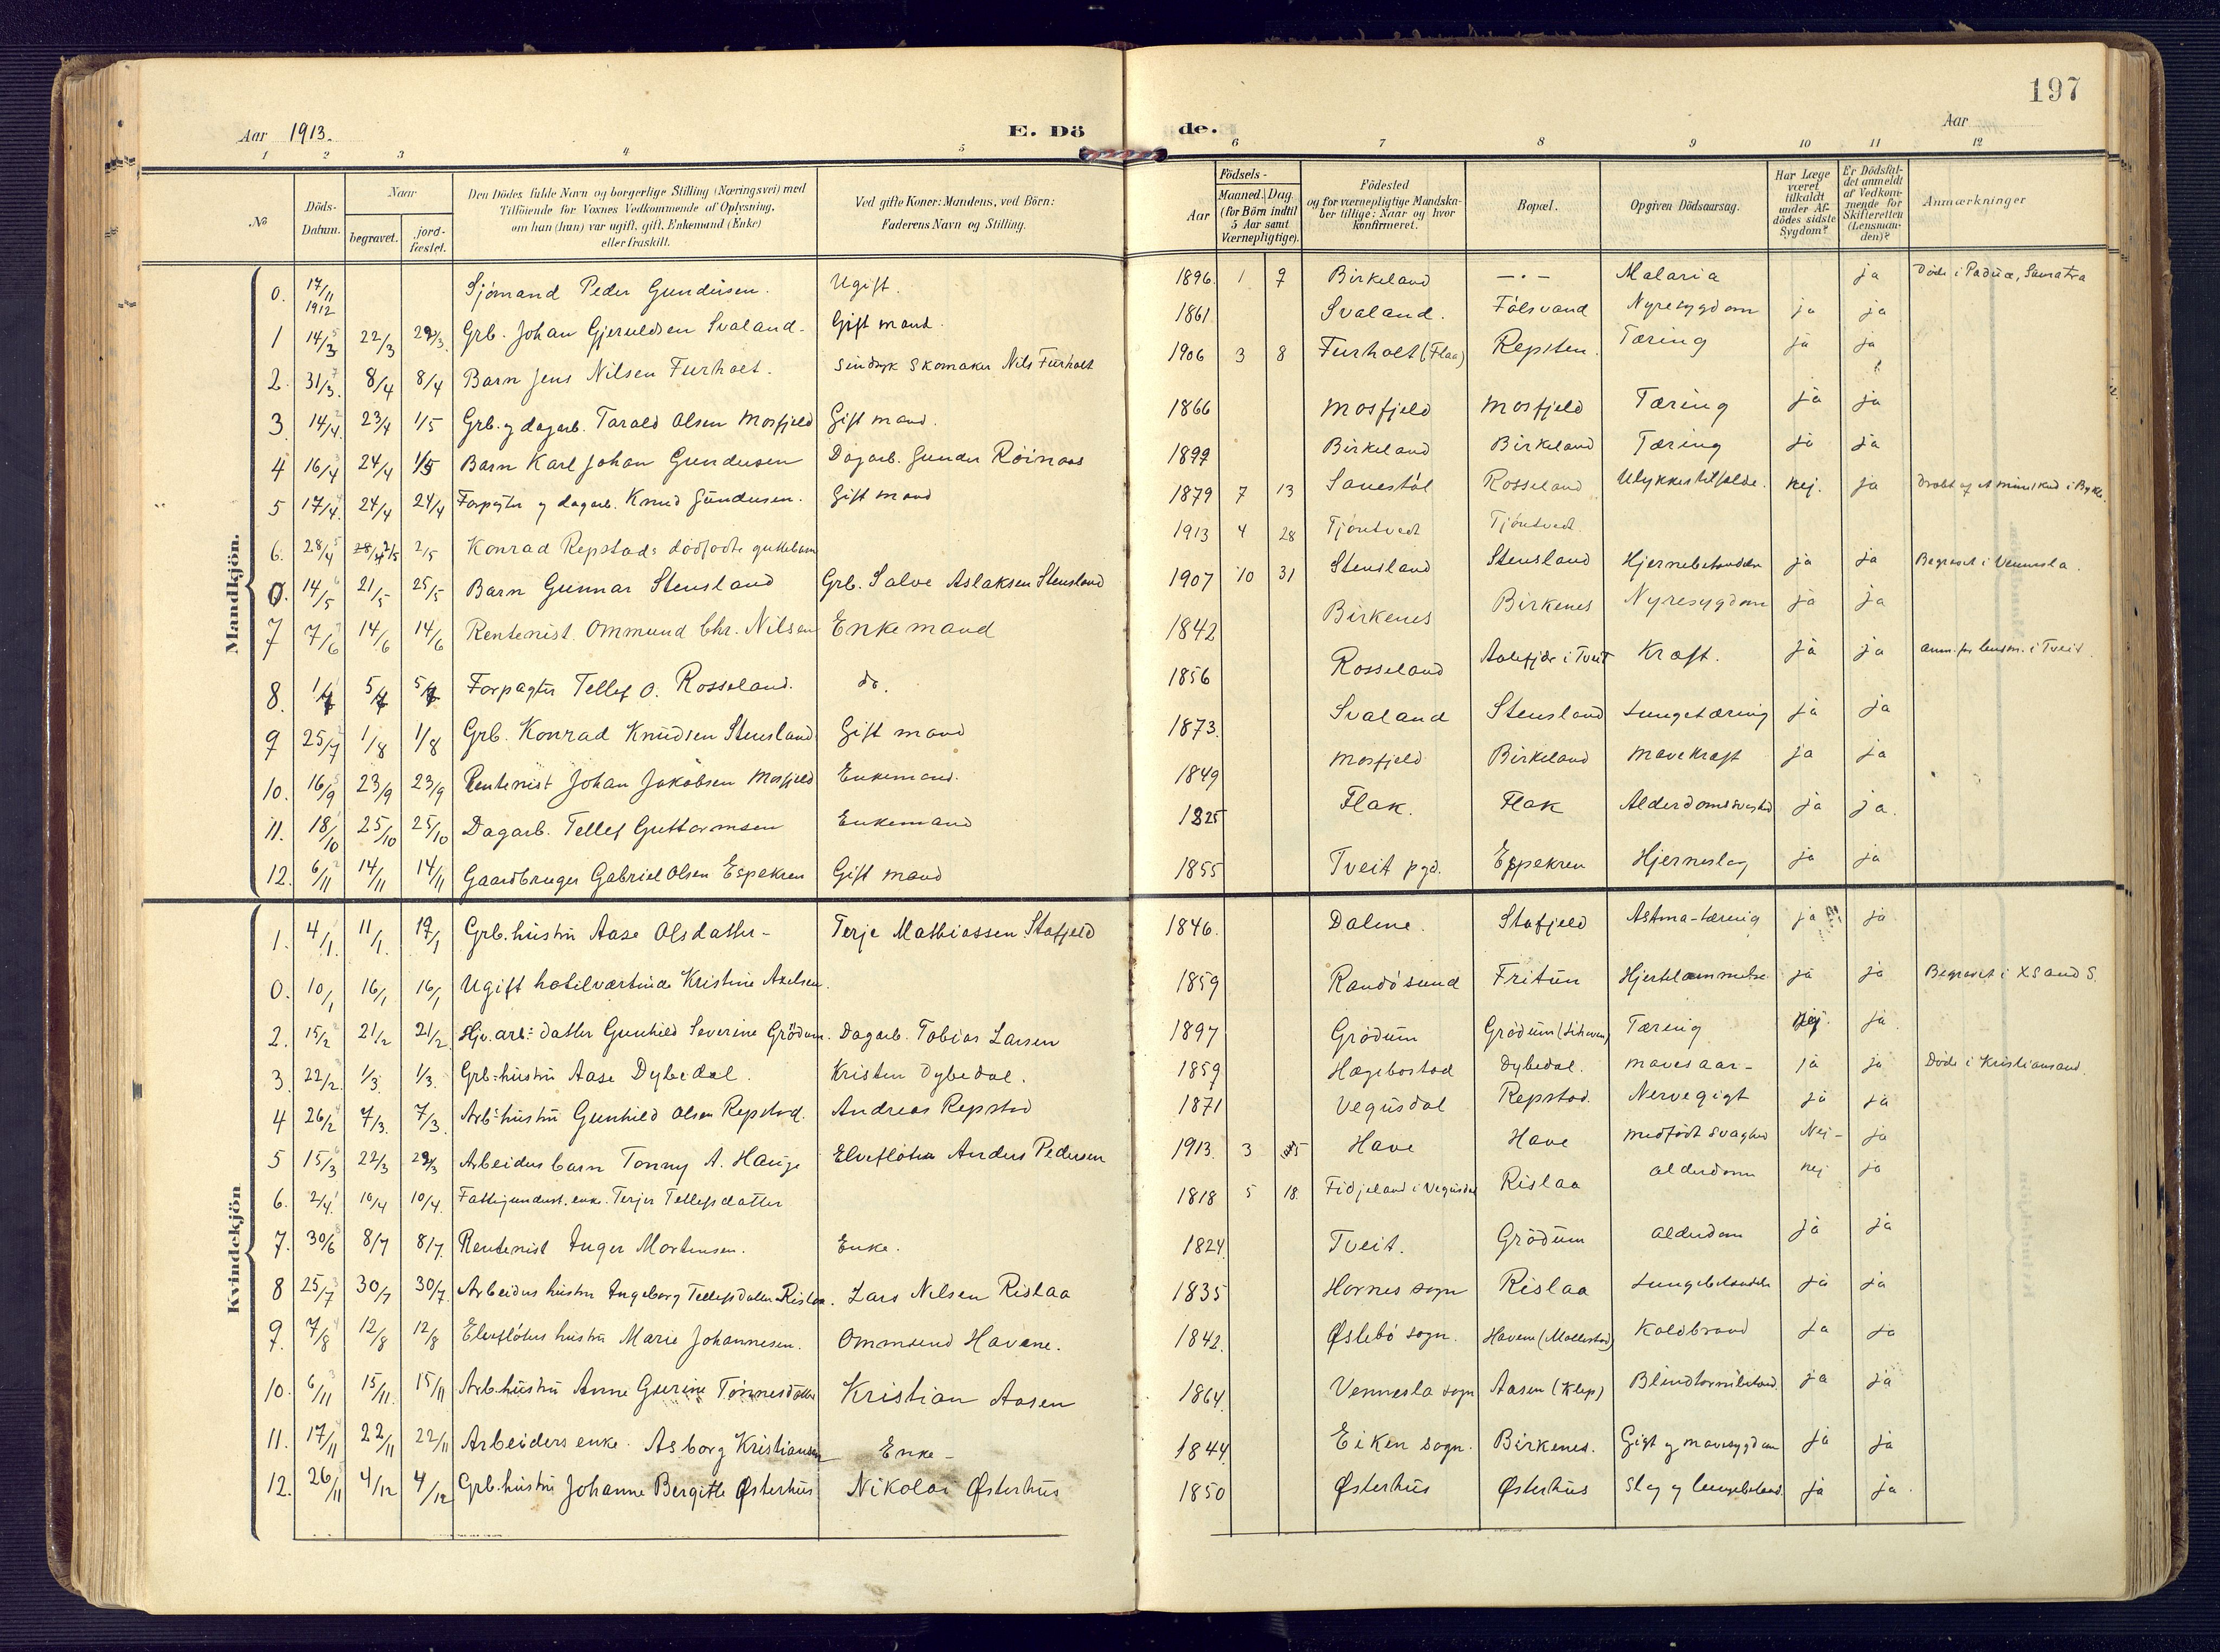 197
Aar 1913. E. Dö de. Aar
1 2 3 4 5 6 7 8 9 10 11 12
№ | Döds-Datum. | Naar begravet. | jord-fæstet. | Den Dödes fulde Navn og borgerlige Stilling (Næringsvei) med Tilföiende for Voxnes Vedkommende af Oplysning, om han (hun) var ugift, gift, Enkemand (Enke) eller fraskilt. | Ved gifte Koner: Mandens, ved Börn: Faderens Navn og Stilling. | Aar | Födsels- Maaned. Dag. (for Börn indtil 5 Aar samt Værnepligtige). | Födested og for værnepligtige Mandskaber tillige: Naar og hvor konfirmeret. | Bopæl. | Opgiven Dödsaarsag. | Har Læge været tilkaldt under Afdödes sidste Sygdom? | Er Dödsfaldet anmeldt af Vedkommende for Skifteretten (Lensmanden)? | Anmærkninger
Mandkjön.
0. 17/11 1912 Sjömand Peder Gundersen. Ugift. 1896. 1 9 Birkeland —·— Malaria ja Döde i Padua, Sumatra
1 14/3 22/3 22/3. Grb. Johan Gjeruldsen Svaland- Gift mand. 1861 Svaland. Fålsvand Nyresygdom ja ja
2. 31/3. 8/4 8/4 Barn Jens Nilsen Furholt. Sindsyk Skomaker Nils Furholt 1906 3 8 Furholt (Flaa) Repsten. Tæring ja ja
3. 14/4. 23/4 1/5 Grb. og dagarb. Tarald Olsen Mosfjeld Gift mand. 1866 Mosfjeld Mosfjeld Tæring ja ja
4 16/4 24/4 1/5 Barn Karl Johan Gundersen Dagarb. Gunder Röinaas 1899 Birkeland Birkeland Tæring ja ja
5 17/4. 24/4 24/4 Forpagter og dagarb. Knud Gundersen. Gift mand 1879 7 13 Sanestöl Rosseland Ulykkestilfælde. Nej. ja Dræbt af et mineskud i Bykle.
6. 28/4 28/4 2/5 2/5 Konrad Repstads dödfödte guttebarn 1913 4 28 Tjöntvedt Tjöntvedt
0. 14/5 21/5 25/5 Barn Gunnar Stensland Grb. Salve Aslaksen Stensland 1907 10 31 Stensland Stensland Hjernebetændelse ja ja Begravet i Vennesla.
7 7/6 14/6 14/6 Rentenist Ommund Chr. Nilsen Enkemand 1842 Birkenes Birkenes Nyresygdom ja ja
8. 1/7 5/7 5/7 Forpagter Tellef O. Rosseland. do. 1856 Rosseland Aalefjær i Tveit Kræft. ja ja anm. for lensm. i Tveit.
9 25/7 1/8 1/8 Grb. Konrad Knudsen Stensland Gift mand 1873. Svaland Stensland Lungetæring ja ja
10. 16/9 23/9 23/9 Rentenist Johan Jakobsen Mosfjeld Enkemand. 1849 Mosfjeld Birkeland Mavekræft ja ja
11. 18/10 25/10 25/10 Dagarb. Tellef Guttormsen Enkemand 1825 Flak. Flak Alderdomssvaghed ja ja.
12. 6/11 14/11 14/11 Gaardbruger Gabriel Olsen Espekren Gift mand 1855 Tveit pgd. Eppekren Hjerneslag ja ja
Kvindekjön
1. 4/1. 11/1. 17/1 Grb.hustru Aase Olsdatter- Terje Mathiassen Stafjeld 1846. Dalene. Stafjeld Astma-tæring ja ja
0. 10/1 16/1 16/1 Ugift hotelværtinde Kristine Axelsen. 1859 Randösund Fritun Hjertelammelse ja ja Begravet i XSand S.
2. 15/2 21/2 21/2 Hjv. arb: datter Gunhild Severine Grödum. Dagarb. Tobias Larsen 1897 Grödum Grödum Tæring Nej. ja
3. 22/2. 1/3. 1/3. Grb:hustru Aase Dybedal. Kristen Dybedal. 1859 Hægebostad Dybedal. Mavesaar- ja ja Döde i Kristiansand.
4 26/2 7/3. 7/3. Arb:hustru Gunhild Olsen Repstad. Andreas Repstad 1871 Vegusdal Repstad. Nervegigt ja ja
5 15/3 22/3 22/3 Arbeidersbarn Tonny A. Hauge Elveflöter Anders Pedersen 1913. 3 Have Have Medfödt svaghed Nej- ja
6. 2/4. 10/4 10/4. Fattigunderst. enke. Terjer Tellefsdatter 1818 5 18. Fidjeland i Vegusdal Rislaa alderdom nej ja
7. 30/6 8/7 8/7. Rentenist Inger Mortensen. Enke. 1824. Tveit. Grödum alderdom ja ja
8 25/7 30/7 30/7. Arbeiders hustru Ingeborg Tellefsdatter Rislaa. Lars Nilsen Rislaa 1835 Hornes sogn Rislaa Lungebetændelse ja ja
9. 7/8 12/8 12/8 Elveflöters hustru Marie Johannesen. Ommund Havene. 1842. Øslebö sogn. Havene (Mollestad) Koldbrand ja ja
10. 6/11 15/11. 15/11 Arb.hustru Anne Gurine Tönnesdatter Kristian Aasen 1864. Vennesla sogn Aasen (Klep) Blindtarmbetænd. ja ja
11. 17/11 22/11 22/11 Arbeiders enke. Asborg Kristiansen Enke- 1844. Eiken sogn. Birkenes. Gigt og mavesygdom ja ja
12. 26/11 4/12 4/12 Grb.hustru Johanne Bergitte Østerhus Nikolai Østerhus 1850 Østerhus Østerhus Slag og lungebetænd. ja ja.